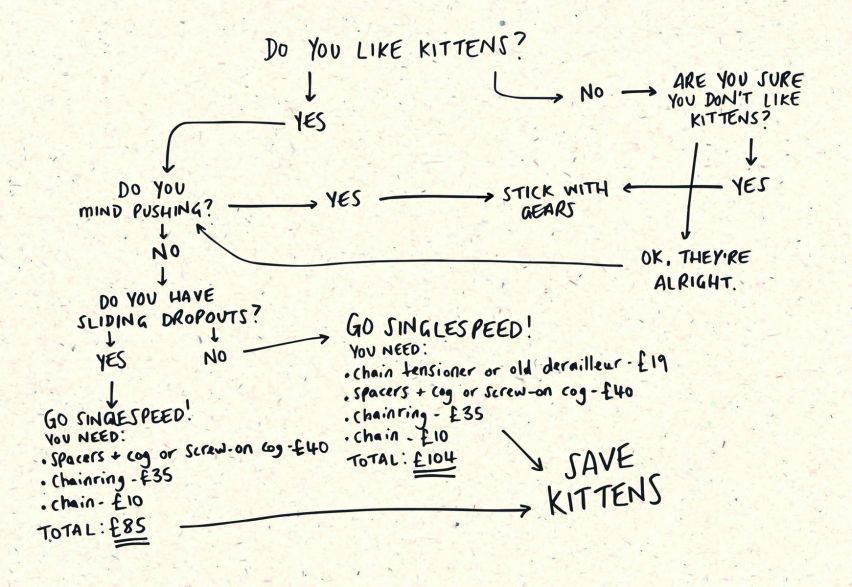 DO YOU LIKE KITTENS?
YES
NO
ARE YOU SURE
YOU DON'T LIKE
KITTENS?
YES
OK, THEY'RE
ALRIGHT.
DO YOU
MIND PUSHING?
YES
STICK WITH
GEARS
NO
DO YOU HAVE
SLIDING DROPOUTS?
YES
NO
GO SINGLESPEED!
YOU NEED:
• chain tensioner or old derailleur - £19
• spacers + cog or screw-on cog - £40
• chainring - £35
• chain - £10
TOTAL: £104
GO SINGLESPEED!
YOU NEED:
• spacers + cog or screw-on cog - £40
• chainring - £35
• chain - £10
TOTAL: £85
SAVE
KITTENS